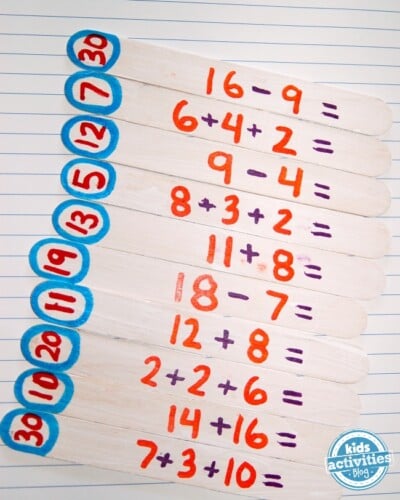 30 16 - 9 =
7 6 + 4 + 2 =
12 9 - 4 =
5 8 + 3 + 2 =
13 11 + 8 =
19 18 - 7 =
11 12 + 8 =
20 2 + 2 + 6 =
10 14 + 16 =
30 7 + 3 + 10 =
kids
activities
Blog